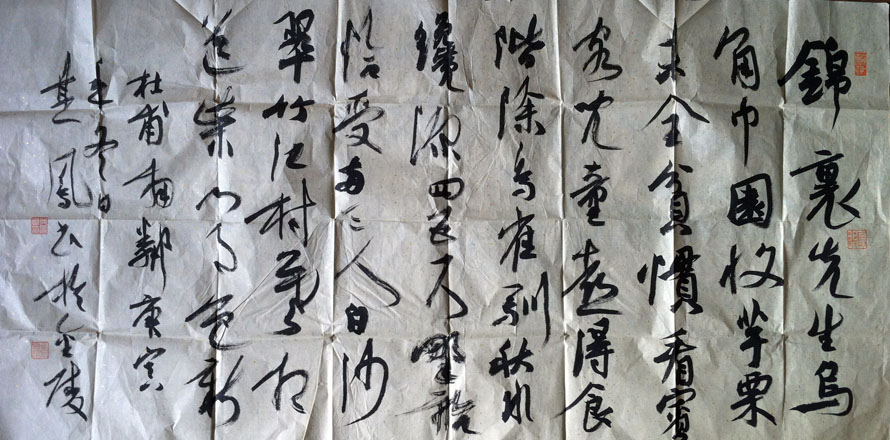 錦裏先生烏
角巾園收芋栗
未全貧慣看賓
客兒童喜得食
階除鳥雀馴秋水
纔深四五尺野航
恰受两三人白沙
翠竹江村暮相
送柴門月色新
杜甫南鄰庚寅
年冬日
鳳书於金陵